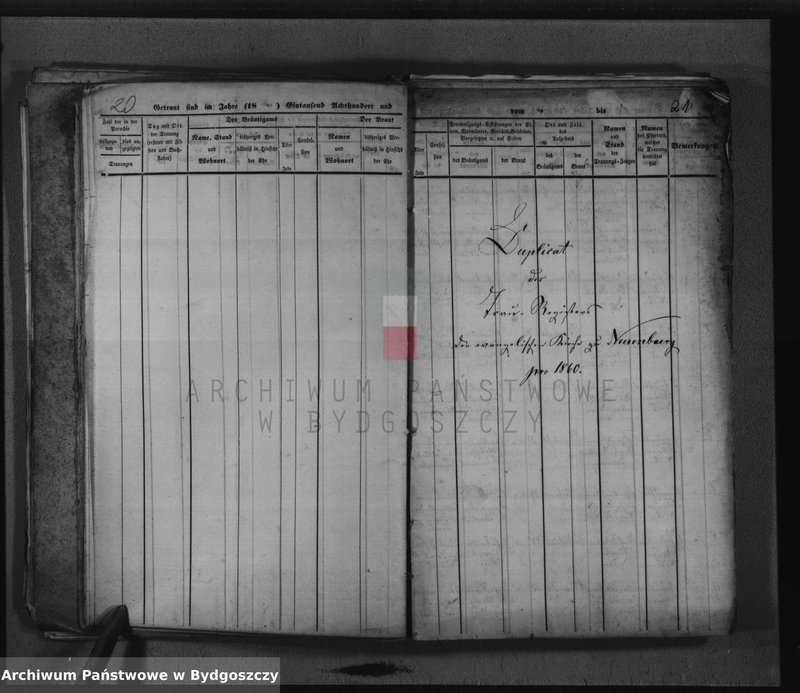 20
Getraut sind im Jahre (18 ) Eintausend Achthundert und
vom bis
21
Zahl der in der Parochie
vollzogenen
Trauungen
Tag und Ort der Trauung
Des Bräutigams
Name, Stand und Wohnort
bisheriges Verhältniß in Hinsicht der Ehe
Alter
Jahr
Confession
Der Braut
Namen und Wohnort
bisheriges Verhältniß in Hinsicht der Ehe
Alter
Jahr
Confession
des Bräutigams
der Braut
Ort und Zeit des Aufgebots
des Bräutigams
der Braut
Namen und Stand der Trauungs-Zeugen
Namen des Pfarrers, welcher die Trauung verrichtet hat
Bemerkungen.
Duplicat
des
Trau-Registers
der evangelischen Kirche zu
pro 1860.
ARCHIWUM PAŃSTWOWE
W BYDGOSZCZY
Archiwum Państwowe w Bydgoszczy